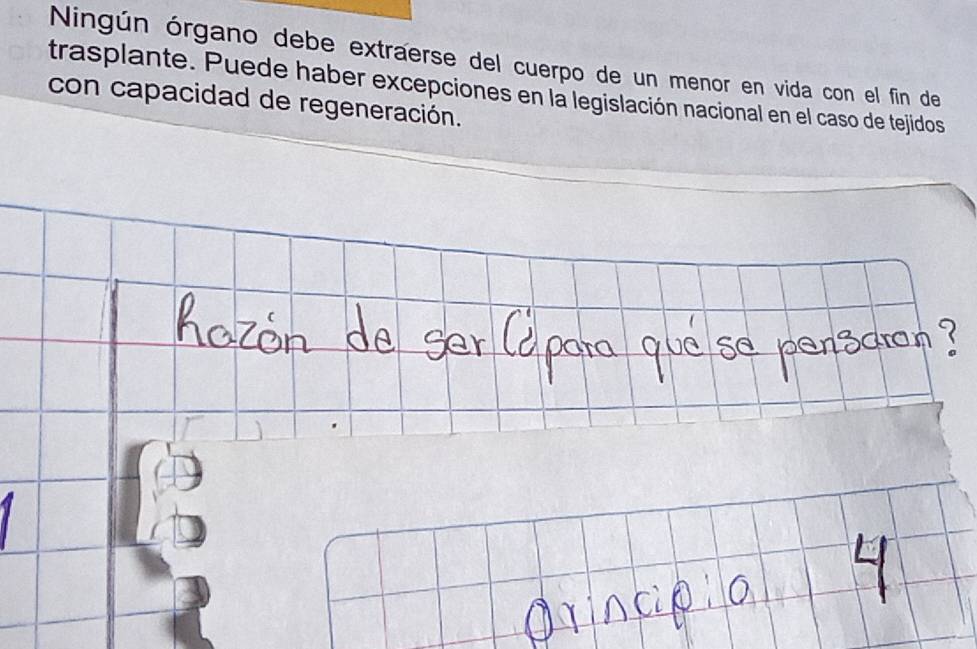 Ningún órgano debe extraerse del cuerpo de un menor en vida con el fin de
trasplante. Puede haber excepciones en la legislación nacional en el caso de tejidos
con capacidad de regeneración.
Razón de ser (¿para qué se pensaron?
1
principio 4